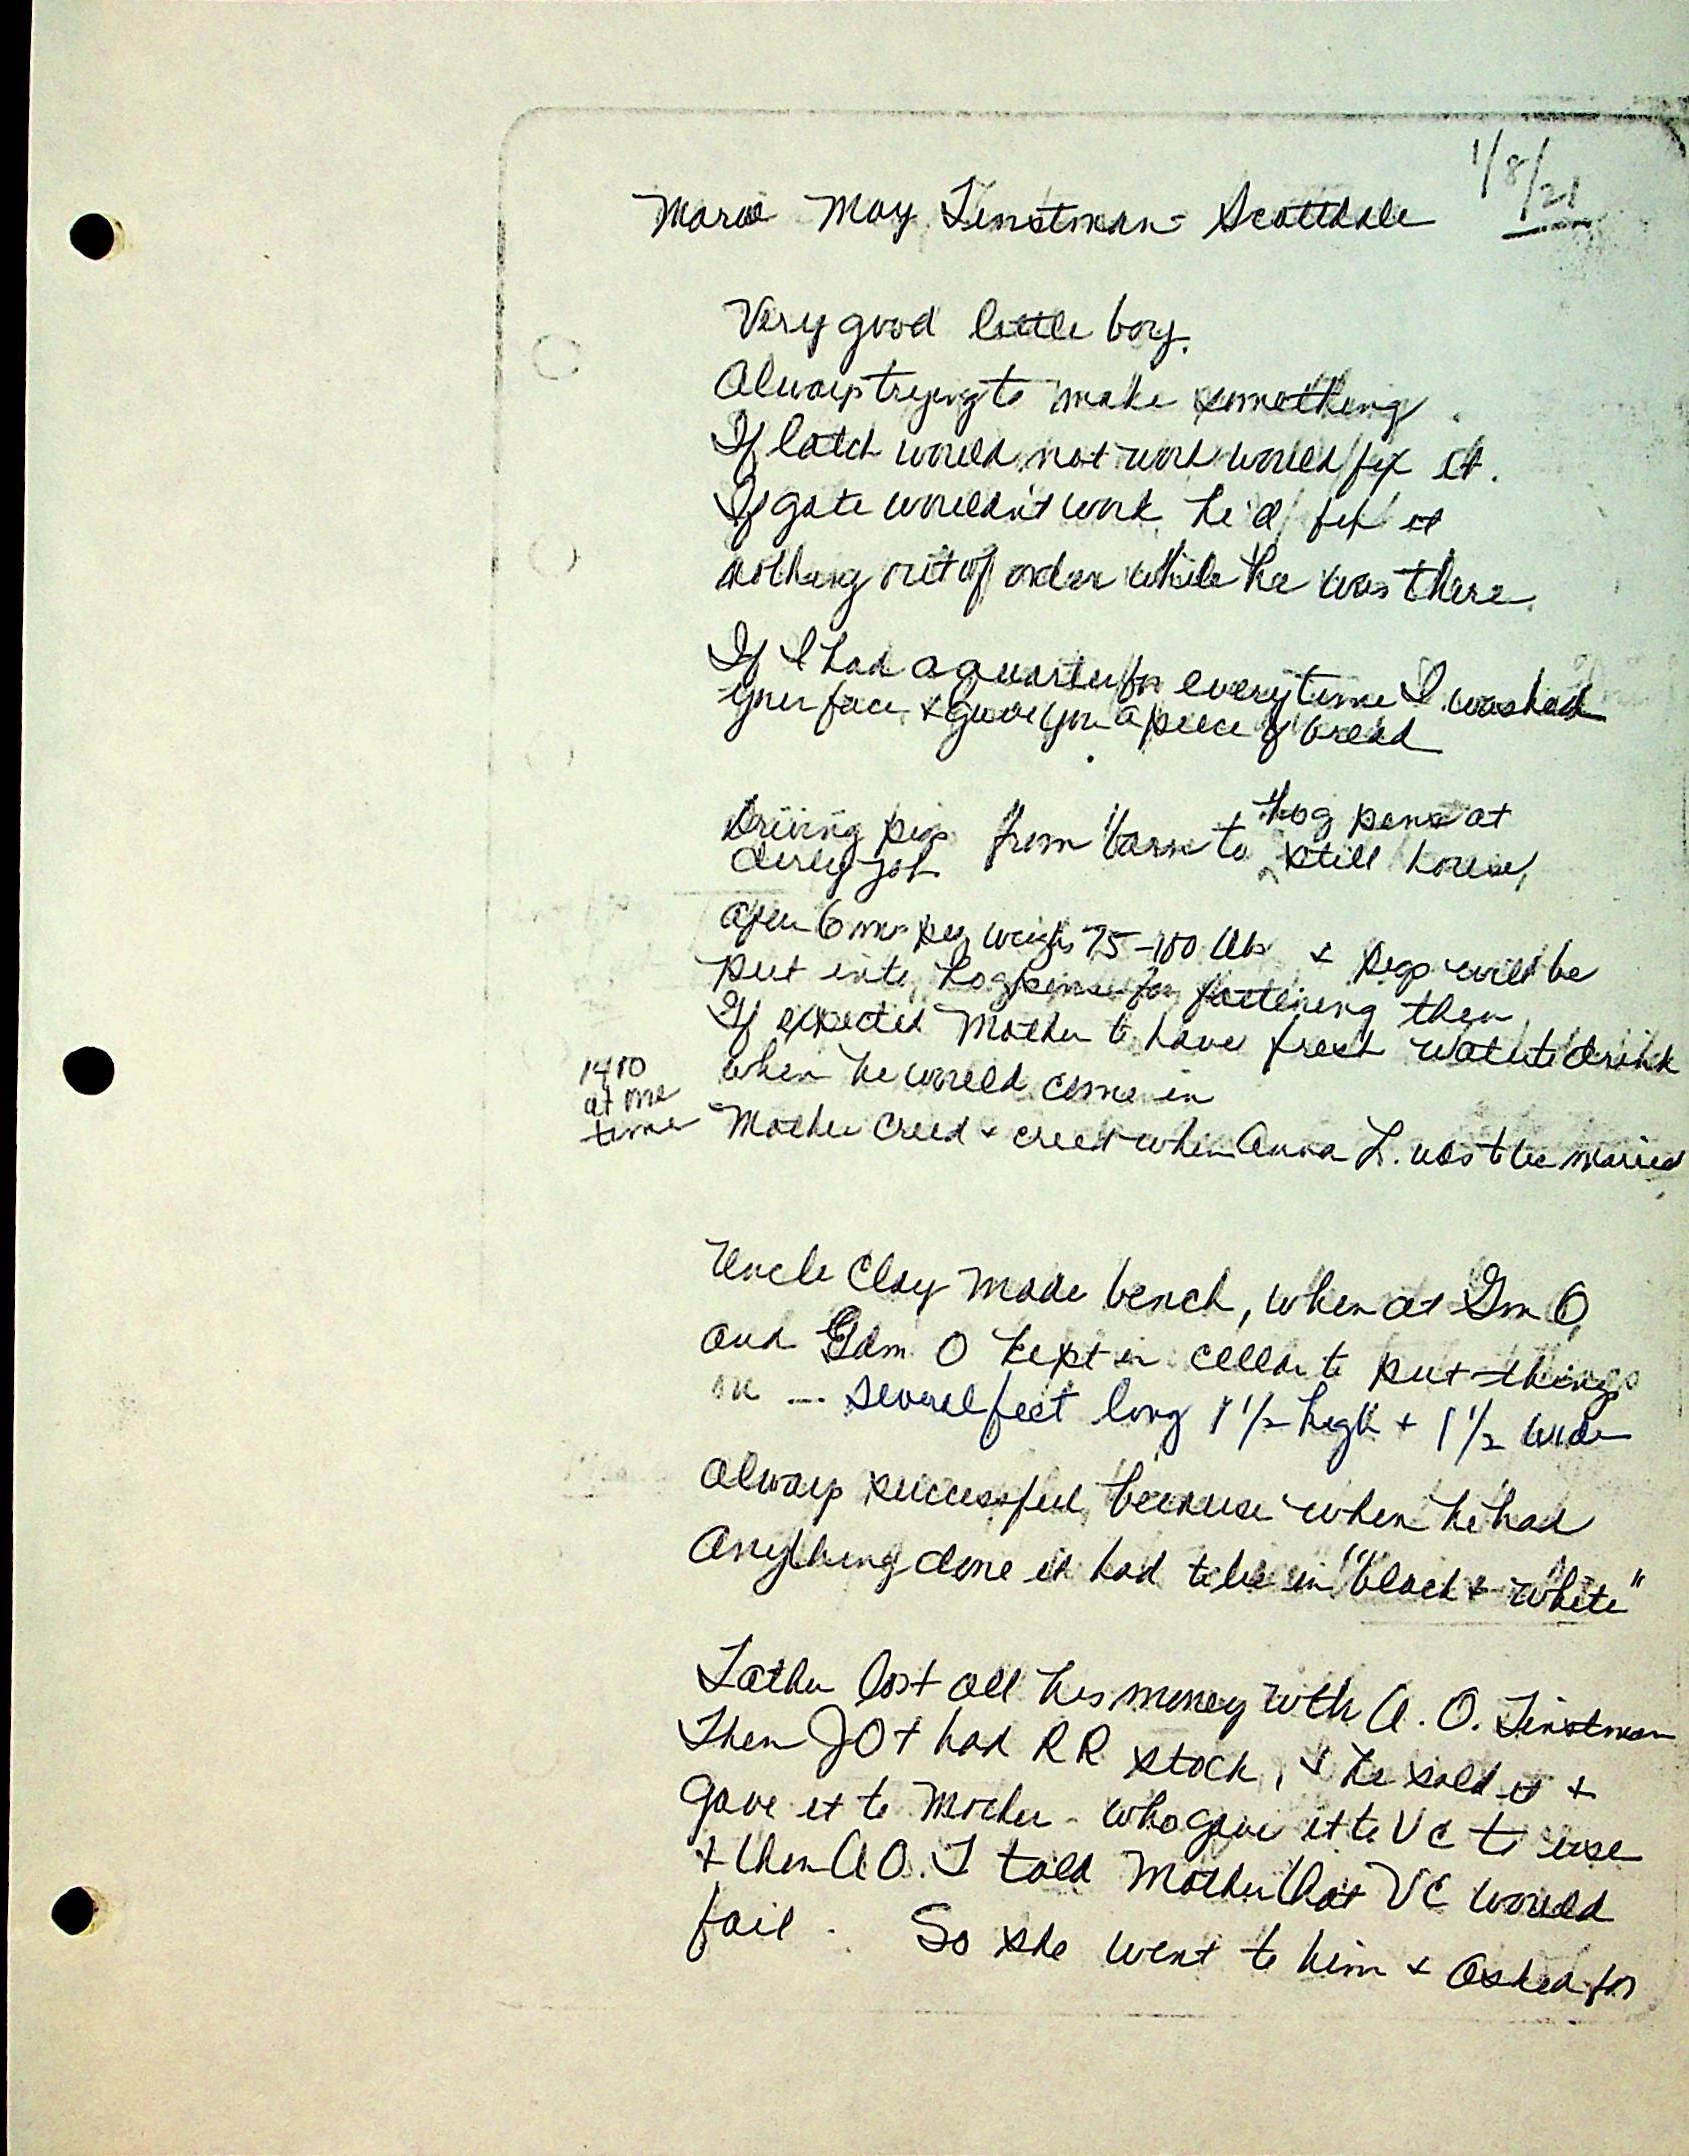 1/8/21
May Tinstman - Scottdale
Very good little boy.
Always trying to make something.
If latch would not work would fix it.
If gate wouldn't work he'd fix it
nothing out of order while he was there.
If I had a quarter for everytime I washed
your face & gave you a piece of bread
Driving pigs from barn to hog pens at still house,
dirty job
After 6 mo. pig weighs 75-100 lbs & pigs will be
put into hog pens for fattening then
If expected Mother to have fresh water to drink
when he would come in
1400
at one
time
Mother cried & cried when Anna L. was to be married
Uncle Clay made bench, when at Gm O,
and Gdm O kept in cellar to put things
on --- several feet long 1 1/2 high + 1 1/2 wide
Always successful, because when he had
Anything done it had to be in "black + white"
Father lost all his money with A. O. Tinstman
Then JOT had RR stock, & he sold it &
gave it to Mother - who gave it to VC to use
+ then A O. I told Mother that VC would
fail. So she went to him & asked for